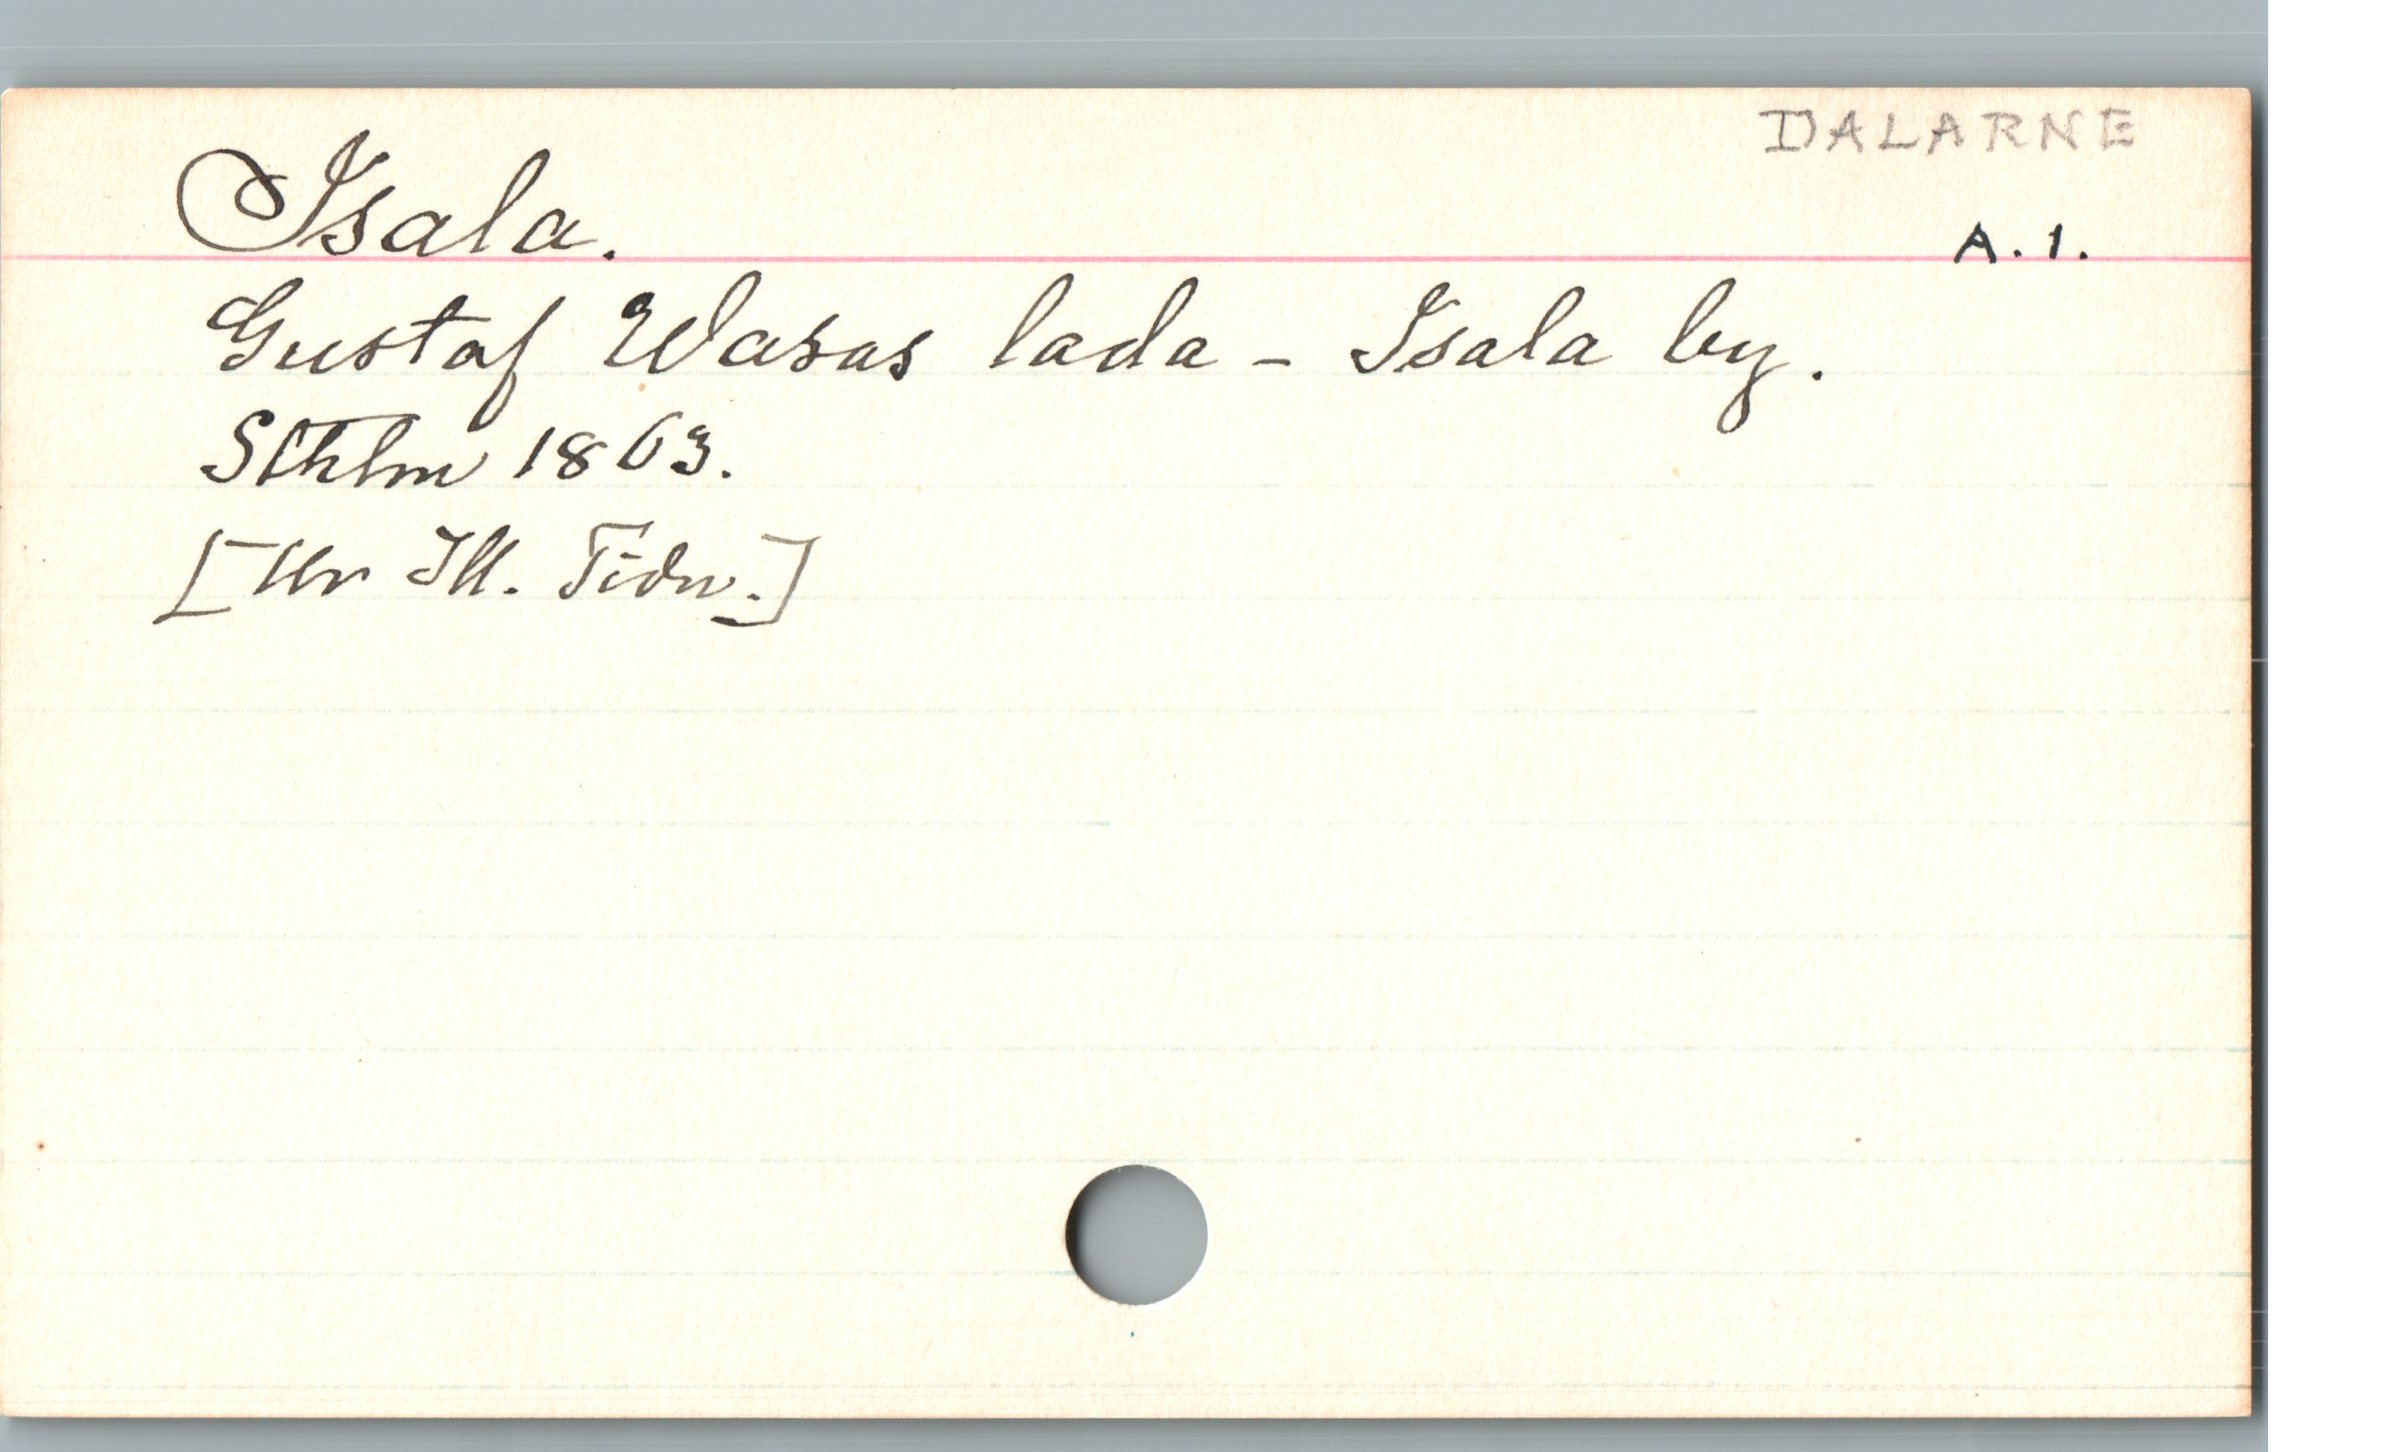 DALARNE
Isala.
A. 1.
Gustaf Wasas lada - Isala by.
Sthlm 1863.
[Ur Ill. Tidn.]